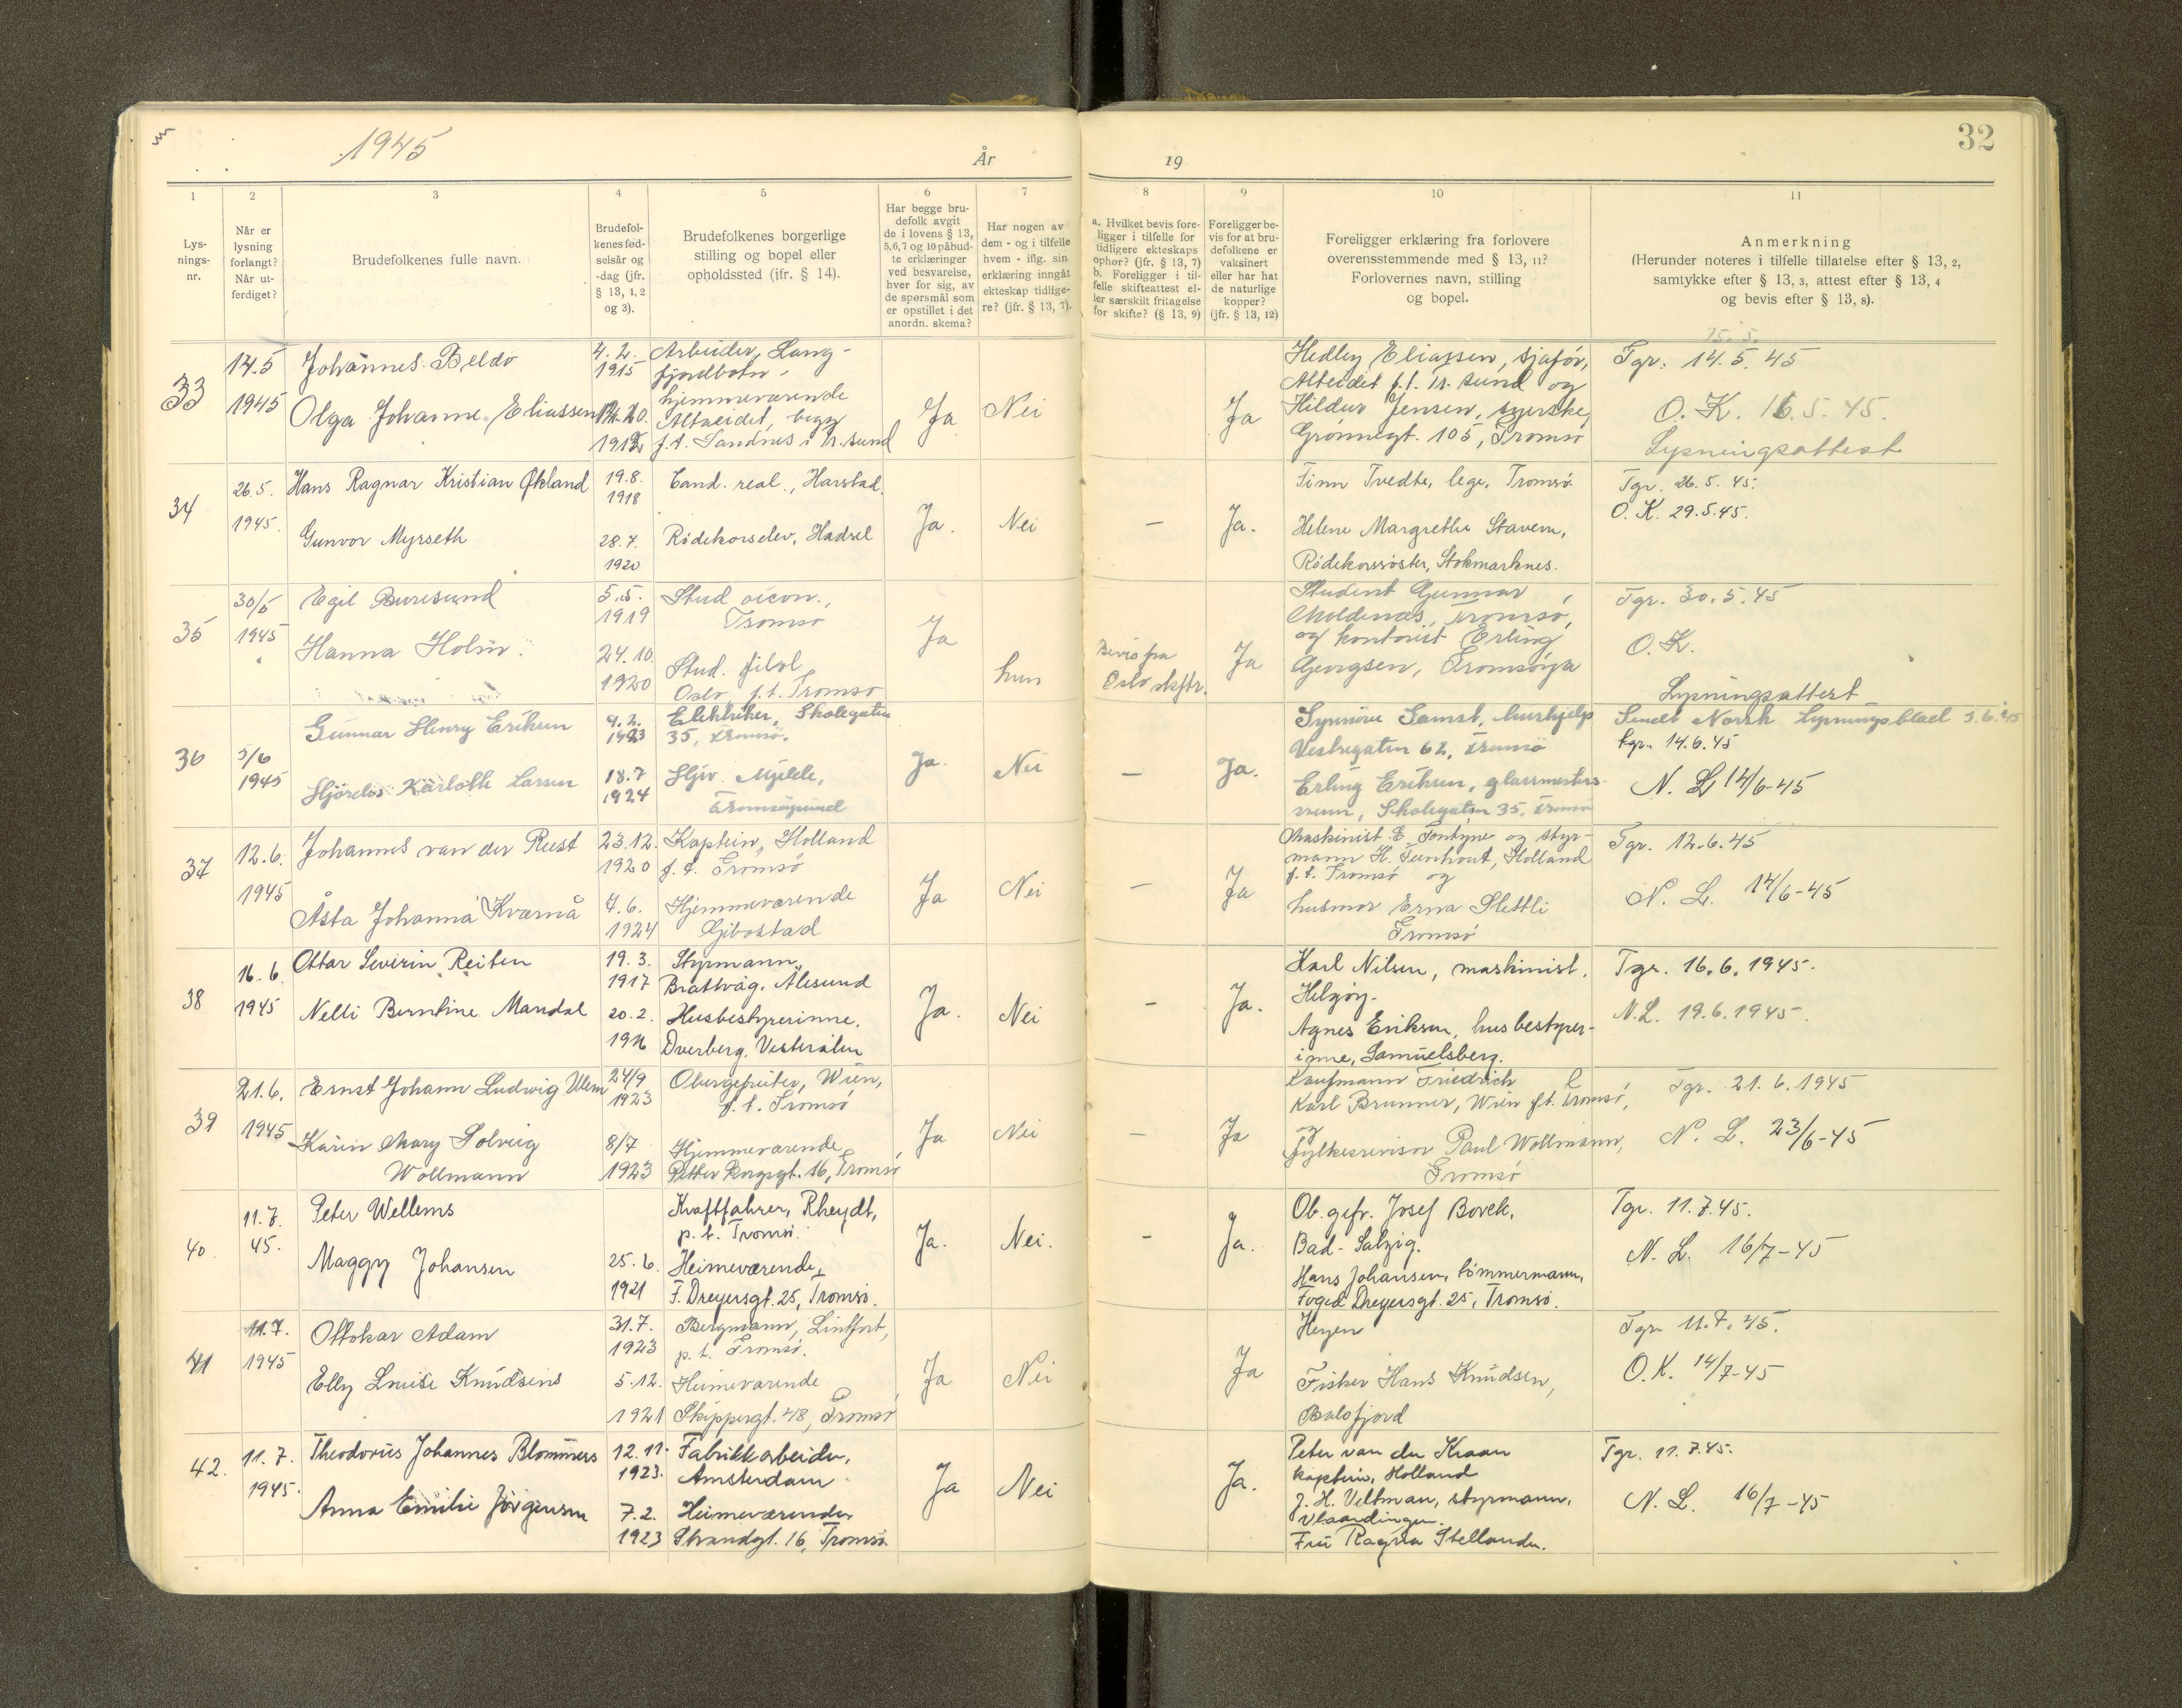 1945
År
19
32
1
2
3
4
5
6
7
8
9
10
11
Lys-
nings-
nr.
Når er
lysning
forlangt?
Når ut-
ferdiget?
Brudefolkenes fulle navn.
Brudefol-
kenes fød-
selsår og
-dag (jfr.
§ 13, 1, 2
og 3).
Brudefolkenes borgerlige
stilling og bopel eller
opholdssted (jfr. § 14).
Har begge bru-
defolk avgit
de i lovens § 13,
5,6,7 og 10 påbud-
te erklæringer
ved besvarelse,
hver for sig, av
de spørsmål som
er opstillet i det
anordn. skema?
Har nogen av
dem - og i tilfelle
hvem - iflg. sin
erklæring inngåt
ekteskap tidlige-
re? (jfr. § 13, 7).
a. Hvilket bevis fore-
ligger i tilfelle for
tidligere ekteskaps
ophør? (jfr. § 13, 7)
b. Foreligger i til-
felle skifteattest el-
ler særskilt fritagelse
for skifte? (§ 13, 9)
Foreligger be-
vis for at bru-
defolkene er
vaksinert
eller har hat
de naturlige
kopper?
(jfr. § 13, 12)
Foreligger erklæring fra forlovere
overensstemmende med § 13, 11?
Forlovernes navn, stilling
og bopel.
Anmerkning
(Herunder noteres i tilfelle tillatelse efter § 13, 2,
samtykke efter § 13, 3, attest efter § 13, 4
og bevis efter § 13, 8).
33
14.5
1945
Johannes Beldo
Olga Johanne Eliassen
4.2.
1915
Arbeider, Lang-
fjordbotn,
hjemmeværende
Alteidet, begge
f.t. Sandnes i
Ja
Nei
Ja
Hedley Eliassen, sjafør,
Alteidet f.t. Tr. sund og
Hildur Jensen, syerske,
Grønnegt. 105, Tromsø
Tgr. 14.5.45
O.K. 16.5.45.
Lysningsattest
34
26.5.
1945.
Hans Ragnar Kristian Økland
Gunvor Myrseth
19.8.
1918
28.7.
1920
Cand. real., Harstad.
Rødekorselev, Hadsel
Ja.
Nei
—
Ja.
Finn Tvedte, lege, Tromsø.
Helene Margrethe Stavem,
Rødekorssøster, Stokmarknes.
Tgr. 26.5.45.
O.K. 29.5.45.
35
30/5
1945
Egil Buresund
Hanna Holm.
5.5.
1919
24.10.
1920
Stud. oicon.,
Tromsø
Stud. filol
Oslo f.t. Tromsø
Ja
hun
Bevis fra
Oslo skftr.
Ja
Student Gunnar
Moldenæs, Tromsø,
og kontorist Erling
Georgsen, Tromsøya
Tgr. 30.5.45
O.K.
Lysningsattest
36
5/6
1945
Gunnar Henry Eriksen
Hjördis Karlotte Larsen
9.2.
1923
18.7
1924
Elektriker, Skolegaten
35, Tromsø.
Hjv. Mjelde,
Tromsøysund
Ja.
Nei
—
Ja.
Synnöve Samst, hushjelp
Vestregaten 62, Tromsö
Erling Eriksen, glassmester
Skolegaten 35, Tromsö
Sendt Norsk Lysningsblad 5.6.45
tgr. 14.6.45
N. L. 14/6-45
37
12.6.
1945
Johannes van der Reest
Åsta Johanna Kværnå
23.12.
1920
7.6.
1924
Kaptein, Holland
f.t. Tromsø
Hjemmeværende
Gibostad
Ja
Nei
—
Ja
Maskinist E. Fontyne og styr-
mann H. Teenhout, Holland
f.t. Tromsø og
husmor Erna Slettli
Tromsø
Tgr. 12.6.45
N. L. 14/6-45
38
16.6.
1945
Ottar Severin Reiten
Nelli Berntine Mardal
19.3.
1917
20.2.
Styrmann,
Brattvåg, Ålesund
Husbestyrerinne,
Dverberg, Vesterålen
Ja.
Nei
—
Ja.
Karl Nilsen, maskinist,
Helgøy.
Agnes Eriksen, husbestyrer-
inne, Samuelsberg.
Tgr. 16.6.1945.
N.L. 19.6.1945.
39
21.6.
1945
Ernst Johann Ludwig Ulem
Karin Mary Solveig
Wollmann
24/9
1923
8/7
1923
Obergefreiter, Wien,
f.t. Tromsø
Hjemmeværende
Petter Borgsgt. 16, Tromsø
Ja
Nei
—
Ja
Kaufmann Friedrich
Karl Brunner, Wien f.t. Tromsø,
og
fylkesrevisor Paul Wollmann,
Tromsø
Tgr. 21.6.1945
N. L. 23/6-45
40.
11.7.
45.
Peter Wellems
Maggy Johansen
25.6.
1921
Kraftfahrer, Rheydt,
p.t. Tromsø.
Heimeværende,
F. Dreyersgt. 25, Tromsø.
Ja.
Nei.
—
Ja.
Ob. gefr. Josef Borek,
Bad-Salzig.
Hans Johansen, tømmermann,
Foged Dreyersgt. 25, Tromsø.
Tgr. 11.7.45.
N. L. 16/7-45
41
11.7.
1945
Ottokar Adam
Elly Louise Knudsens
31.7.
1923
5.12.
1921
Bergmann, Lintfort,
p.t. Tromsø.
Heimeværende
Skippergt. 48, Tromsø
Ja
Nei
Ja
Heyen
Fisker Hans Knudsen,
Balsfjord
Tgr. 11.7.45.
O.K. 14/7-45
42.
11.7.
1945.
Theodorus Johannes Blommers
Anna Emilie Jørgensen
12.11.
1923.
7.2.
1923
Fabrikkarbeider,
Amsterdam
Heimeværende,
Strandgt. 16, Tromsø.
Ja
Nei
Ja.
Peter van der Kraan
kaptein, Holland
J. H. Veltman, styrmann,
Vlaardingen.
Fru Ragna Stellander.
Tgr. 11.7.45.
N. L. 16/7-45